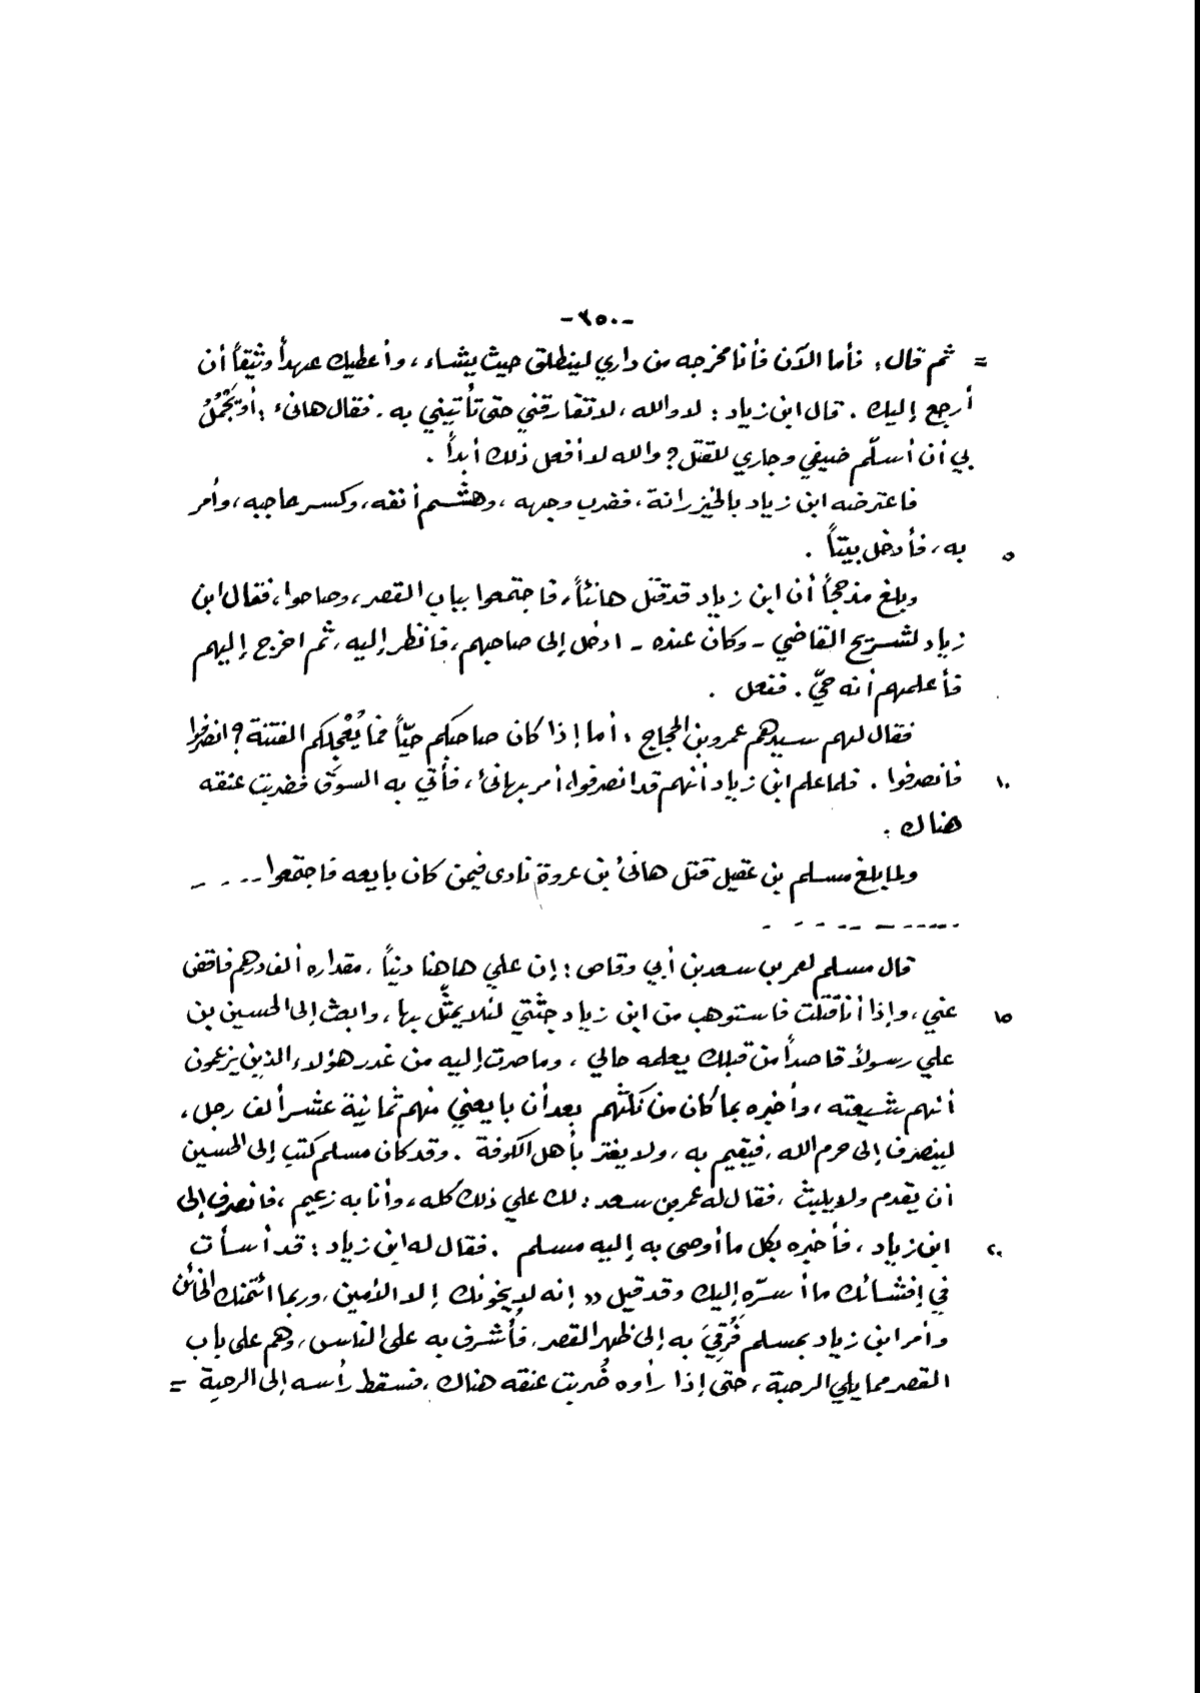 -٢٥٠-
= ثم قال: فأما الآن فأنا مخرجه من داري لينطلق حيث يشاء، وأعطيك عهداً وثيقاً أن
أرجع إليك. قال ابن زياد: لا والله، لا تفارقني حتى تأتيني به. فقال هانىء: أو يَجْمُلُ
بي أن أسلّم ضيفي وجاري للقتل؟ والله لا أفعل ذلك أبداً.
فاعترضه ابن زياد بالخيزرانة، فضرب وجهه، وهشم أنفه، وكسر حاجبه، وأمر
٥ به، فأدخل بيتاً.
وبلغ مذحجاً أن ابن زياد قد قتل هانئاً، فاجتمعوا بباب القصر، وصاحوا، فقال ابن
زياد لشريح القاضي - وكان عنده - ادخل إلى صاحبهم، فانظر إليه، ثم اخرج إليهم
فأعلمهم أنه حيّ. ففعل.
فقال لهم سيدهم عمرو بن الحجاج: أما إذا كان صاحبكم حيّاً فما يُعْجِلكم الفتنة؟ انصرفوا
١٠ فانصرفوا. فلما علم ابن زياد أنهم قد انصرفوا، أمر بهانئ، فأتي به السوق فضربت عنقه
هناك.
ولما بلغ مسلم بن عقيل قتل هانئ بن عروة نادى فيمن كان بايعه فاجتمعوا - - - -
- - - - - - - - -
قال مسلم لعمر بن سعد بن أبي وقاص: إن علي هاهنا ديناً، مقداره ألف درهم فاقض
١٥ عني، وإذا أنا قتلت فاستوهب من ابن زياد جثتي لئلا يمثّل بها، وابعث إلى الحسين بن
علي رسولاً قاصداً من قبلك يعلمه حالي، وما صرت إليه من غدر هؤلاء الذين يزعمون
أنهم شيعته، وأخبره بما كان من نكثهم بعد أن بايعني منهم ثمانية عشر ألف رجل،
لينصرف إلى حرم الله، فيقيم به، ولا يغتر بأهل الكوفة. وقد كان مسلم كتب إلى الحسين
أن يقدم ولا يلبث، فقال له عمر بن سعد: لك علي ذلك كله، وأنا به زعيم، فانصرف إلى
٢٠ ابن زياد، فأخبره بكل ما أوصى به إليه مسلم. فقال له ابن زياد: قد أسأت
في إفشائك ما أسرّه إليك وقد قيل «إنه لا يخونك إلا الأمين، وربما ائتمنك الخائن
وأمر ابن زياد بمسلم فَرُقِيَ به إلى ظهر القصر، فأُشرف به على الناس، وهم على باب
القصر مما يلي الرحبة، حتى إذا رأوه ضُربت عنقه هناك، فسقط رأسه إلى الرحبة =